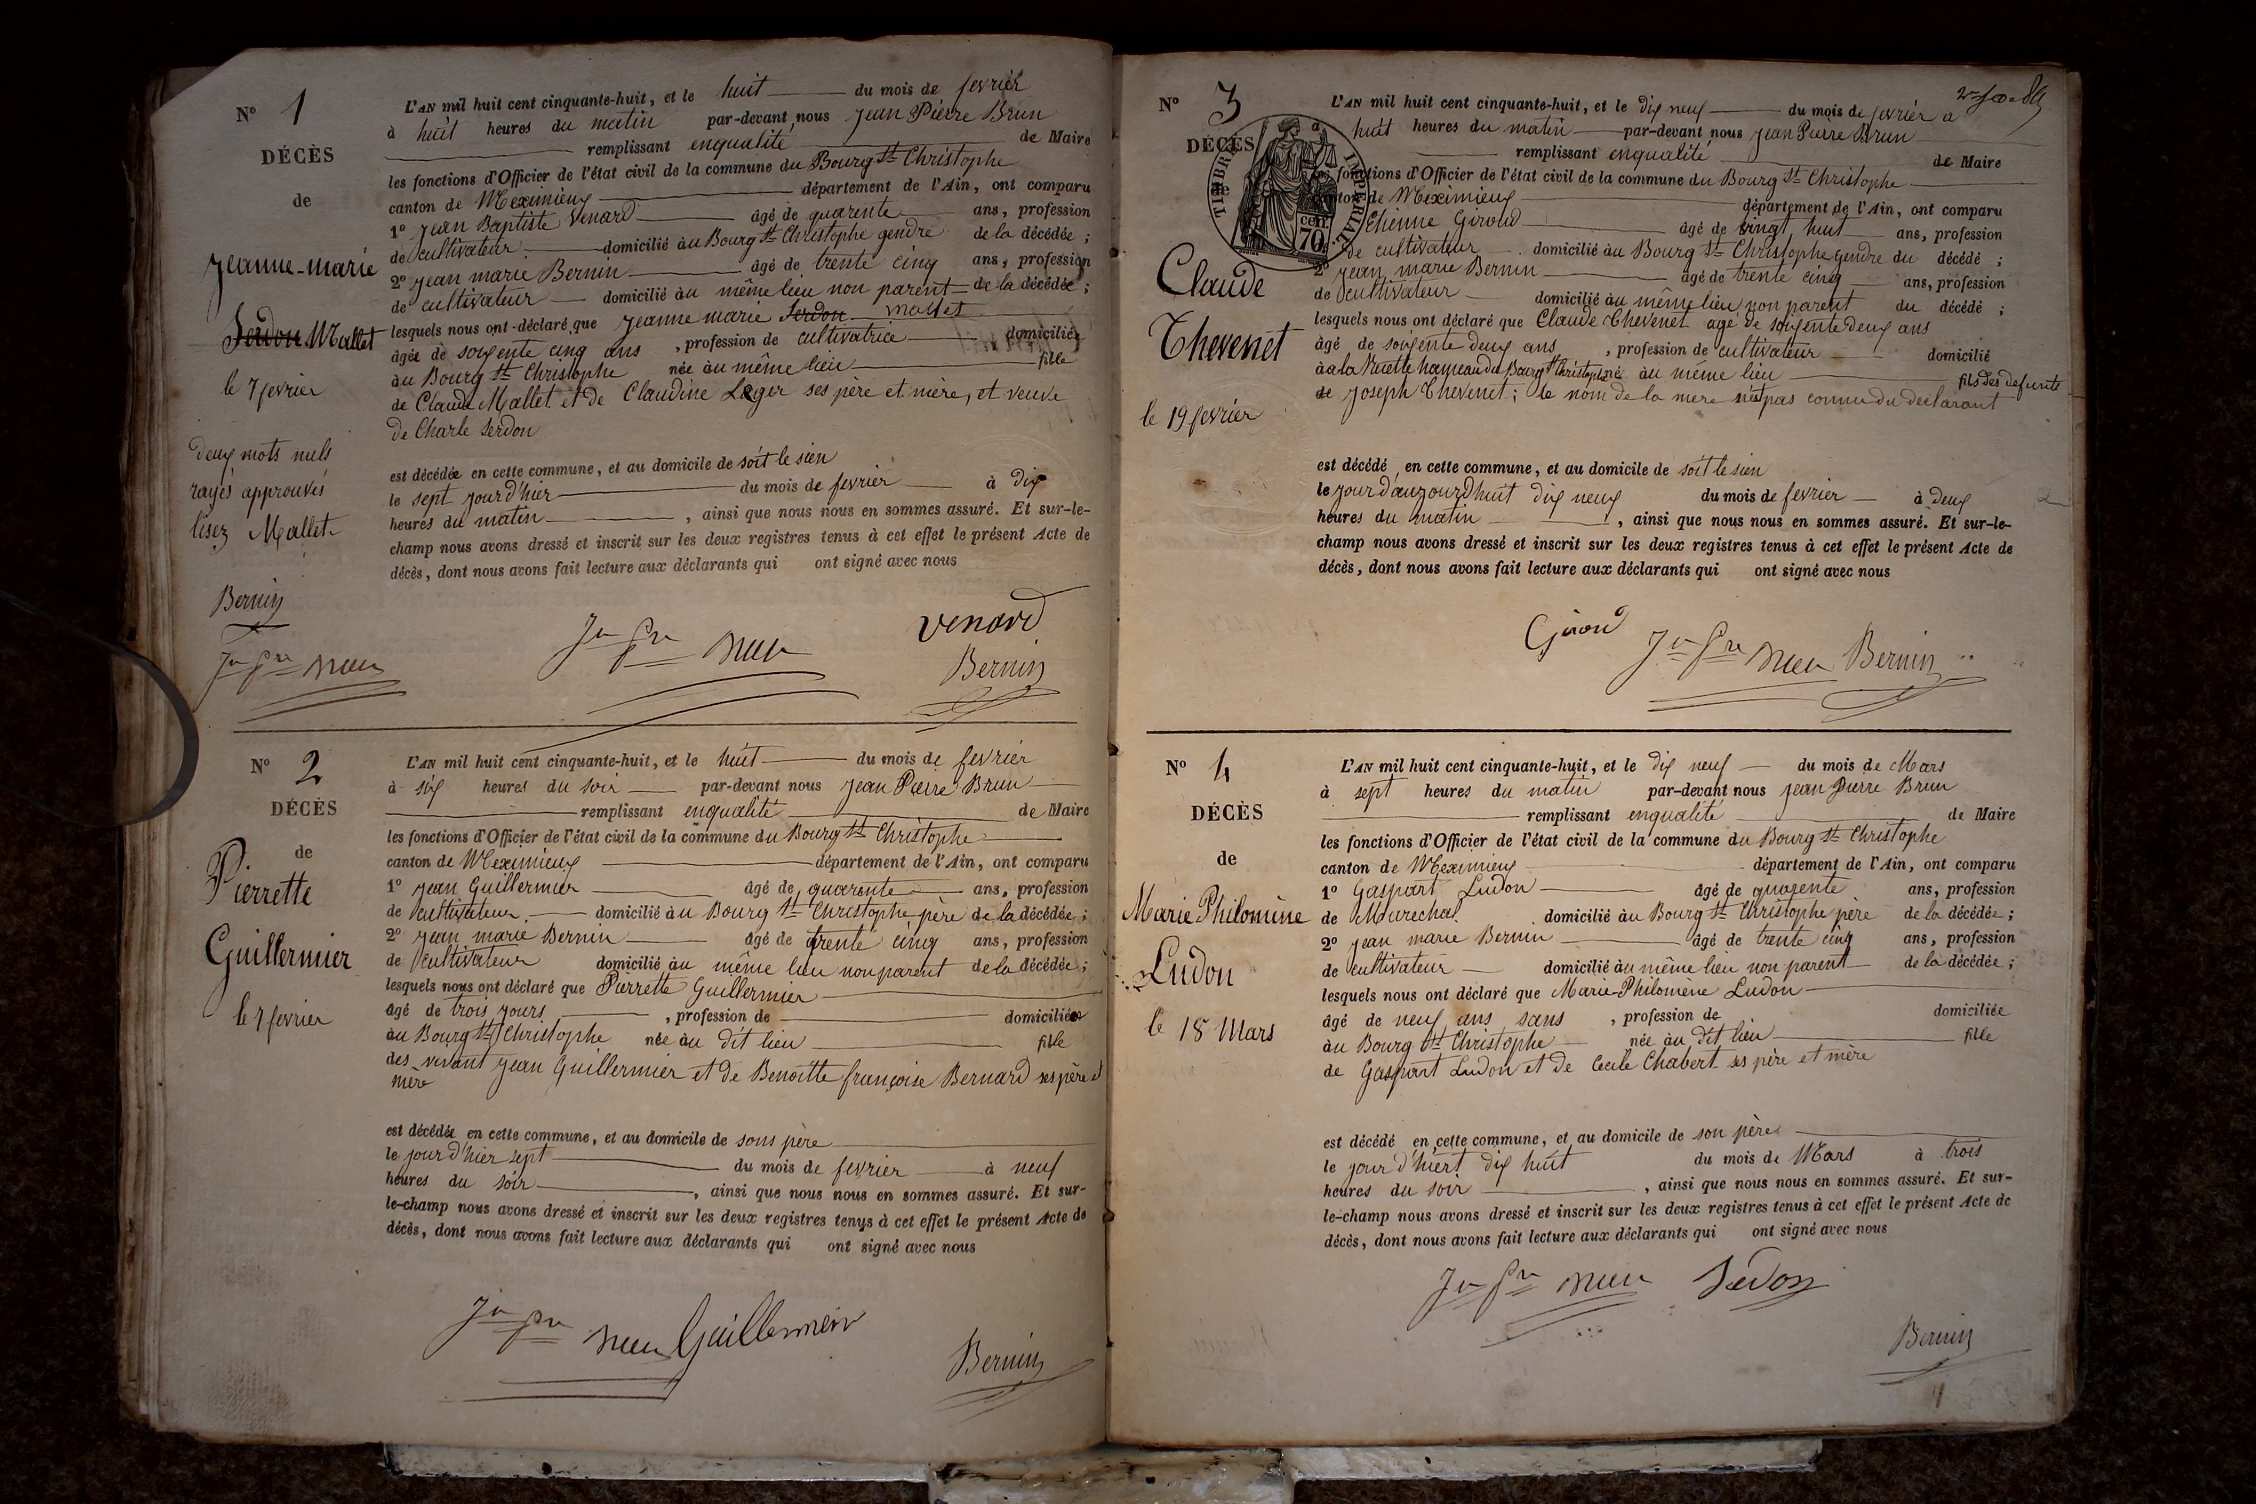 N° 1
DÉCÈS
de
Jeanne-marie
Serdon Mallet
le 7 fevrier
deux mots nuls
rayés approuvés
lisez Mallet
Bernin
L'AN mil huit cent cinquante-huit, et le huit du mois de fevrier
à huit heures du matin par-devant nous Jean Pierre Brun
remplissant enqualité de Maire
les fonctions d'Officier de l'état civil de la commune du Bourg St Christophe
canton de Meximieux département de l'Ain, ont comparu
1° Jean Baptiste Venard âgé de quarente ans, profession
de cultivateur domicilié au Bourg St Christophe gendre de la décédée ;
2° Jean marie Bernin âgé de trente cinq ans, profession
de cultivateur domicilié au même lieu non parent de la décédée ;
lesquels nous ont déclaré que Jeanne marie Serdon Mallet
âgée de soixente cinq ans, profession de cultivatrice domiciliée
au Bourg St Christophe née au même lieu fille
de Claude Mallet et de Claudine Leger ses père et mère, et veuve
de Charle Serdon
est décédée en cette commune, et au domicile de soit le sien
le sept jour d'hier du mois de fevrier à dix
heures du matin, ainsi que nous nous en sommes assuré. Et sur-le-
champ nous avons dressé et inscrit sur les deux registres tenus à cet effet le présent Acte de
décès, dont nous avons fait lecture aux déclarants qui ont signé avec nous
Venard
Bernin
N° 2
DÉCÈS
de
Pierrette
Guillermier
le 7 fevrier
L'AN mil huit cent cinquante-huit, et le huit du mois de fevrier
à six heures du soir par-devant nous Jean Pierre Brun
remplissant enqualité de Maire
les fonctions d'Officier de l'état civil de la commune du Bourg St Christophe
canton de Meximieux département de l'Ain, ont comparu
1° Jean Guillermier âgé de quarente ans, profession
de cultivateur domicilié au Bourg St Christophe père de la décédée ;
2° Jean marie Bernin âgé de trente cinq ans, profession
de cultivateur domicilié au même lieu non parent de la décédée ;
lesquels nous ont déclaré que Pierrette Guillermier
âgé de trois jours, profession de domiciliée
au Bourg St Christophe née au dit lieu fille
des vivant Jean Guillermier et de Benoitte françoise Bernard ses père et
mère
est décédée en cette commune, et au domicile de sons père
le jour d'hier sept du mois de fevrier à neuf
heures du soir, ainsi que nous nous en sommes assuré. Et sur-
le-champ nous avons dressé et inscrit sur les deux registres tenus à cet effet le présent Acte de
décès, dont nous avons fait lecture aux déclarants qui ont signé avec nous
Guillermier
Bernin
N° 3
DÉCÈS
de
TIMBRE IMPERIAL
cent. 70
Claude
Thevenet
le 19 fevrier
L'AN mil huit cent cinquante-huit, et le dix neuf du mois de fevrier a
huit heures du matin par-devant nous Jean Pierre Brun
remplissant enqualité de Maire
les fonctions d'Officier de l'état civil de la commune du Bourg St Christophe
canton de Meximieux département de l'Ain, ont comparu
Etienne Giroud âgé de vingt huit ans, profession
de cultivateur domicilié au Bourg St Christophe gendre du décédé ;
2° Jean marie Bernin âgé de trente cinq ans, profession
de cultivateur domicilié au même lieu non parent du décédé ;
lesquels nous ont déclaré que Claude Thevenet agé de soixente deux ans
âgé de soixente deux ans, profession de cultivateur domicilié
à a la Ruette hameau du Bourg St Christophe né au même lieu fils des defunts
de Joseph Thevenet ; le nom de la mere n'est pas connu du declarant
est décédé en cette commune, et au domicile de soit le sien
le jour d'aujourd'huit dix neuf du mois de fevrier à deux
heures du matin, ainsi que nous nous en sommes assuré. Et sur-le-
champ nous avons dressé et inscrit sur les deux registres tenus à cet effet le présent Acte de
décès, dont nous avons fait lecture aux déclarants qui ont signé avec nous
Giroud
Bernin
N° 4
DÉCÈS
de
Marie Philomène
Ludon
le 18 Mars
L'AN mil huit cent cinquante-huit, et le dix neuf du mois de Mars
à sept heures du matin par-devant nous Jean Pierre Brun
remplissant enqualité de Maire
les fonctions d'Officier de l'état civil de la commune du Bourg St Christophe
canton de Meximieux département de l'Ain, ont comparu
1° Gaspart Ludon âgé de quarente ans, profession
de Marechal domicilié au Bourg St Christophe père de la décédée ;
2° Jean marie Bernin âgé de trente cinq ans, profession
de cultivateur domicilié au même lieu non parent de la décédée ;
lesquels nous ont déclaré que Marie-Philomene Ludon
âgé de neuf ans sans, profession de domiciliée
au Bourg St Christophe née au dit lieu fille
de Gaspart Ludon et de Cecile Chabert ses père et mère
est décédé en cette commune, et au domicile de son père
le jour d'hiert dix huit du mois de Mars à trois
heures du soir, ainsi que nous nous en sommes assuré. Et sur-
le-champ nous avons dressé et inscrit sur les deux registres tenus à cet effet le présent Acte de
décès, dont nous avons fait lecture aux déclarants qui ont signé avec nous
Bernin